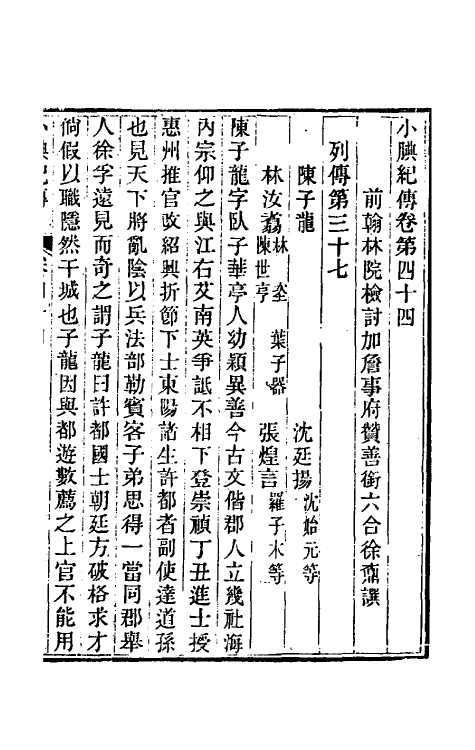 小腆紀傳卷第四十四
前翰林院檢討加詹事府贊善銜六合徐鼒譔
列傳第三十七
陳子龍 沈廷揚沈始元等
林汝翥林垐 陳世亨 葉子器 張煌言羅子木等
陳子龍字臥子華亭人幼穎異善今古文偕郡人立幾社海
內宗仰之與江右艾南英爭詆不相下登崇禎丁丑進士授
惠州推官改紹興折節下士東陽諸生許都者副使達道孫
也見天下將亂陰以兵法部勒賓客子弟思得一當同郡舉
人徐孚遠見而奇之謂子龍曰許都國士朝廷方破格求才
倘假以職隱然干城也子龍因與都遊數薦之上官不能用